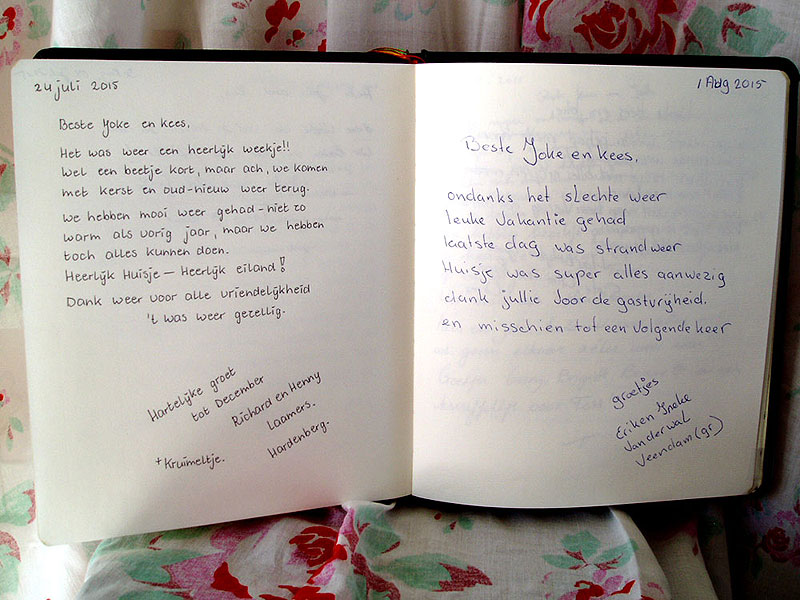 24 juli 2015
Beste Yoke en kees,
Het was weer een heerlijk weekje!!
Wel een beetje kort, maar ach, we komen
met kerst en oud-nieuw weer terug.
We hebben mooi weer gehad - niet zo
warm als vorig jaar, maar we hebben
toch alles kunnen doen.
Heerlijk Huisje - Heerlijk eiland!
Dank weer voor alle vriendelijkheid
't was weer gezellig.
Hartelijke groet
tot December
Richard en Henny
Laamers.
Hardenberg.
+Kruimeltje.
1 Aug 2015
Beste Yoke en kees,
ondanks het slechte weer
leuke vakantie gehad
laatste dag was strandweer
Huisje was super alles aanwezig
dank jullie voor de gastvrijheid.
en misschien tot een volgende keer
groetjes
Erik en Ineke
van der wal
Veendam (gr)